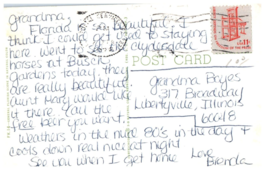 Grandma,
Florida is so beautiful, I
think I could get used to staying
here. Went to see clydesdale
horses at Busch
gardens today, they
are really beautiful
aunt Mary would like
it there (all the
free beer you want).
Weathers in the mid 80's in the day &
cools down real nice at night
See you when I get home
Love
Brenda
POST CARD
Grandma Boyes
317 Broadway
Libertyville, Illinois
60048